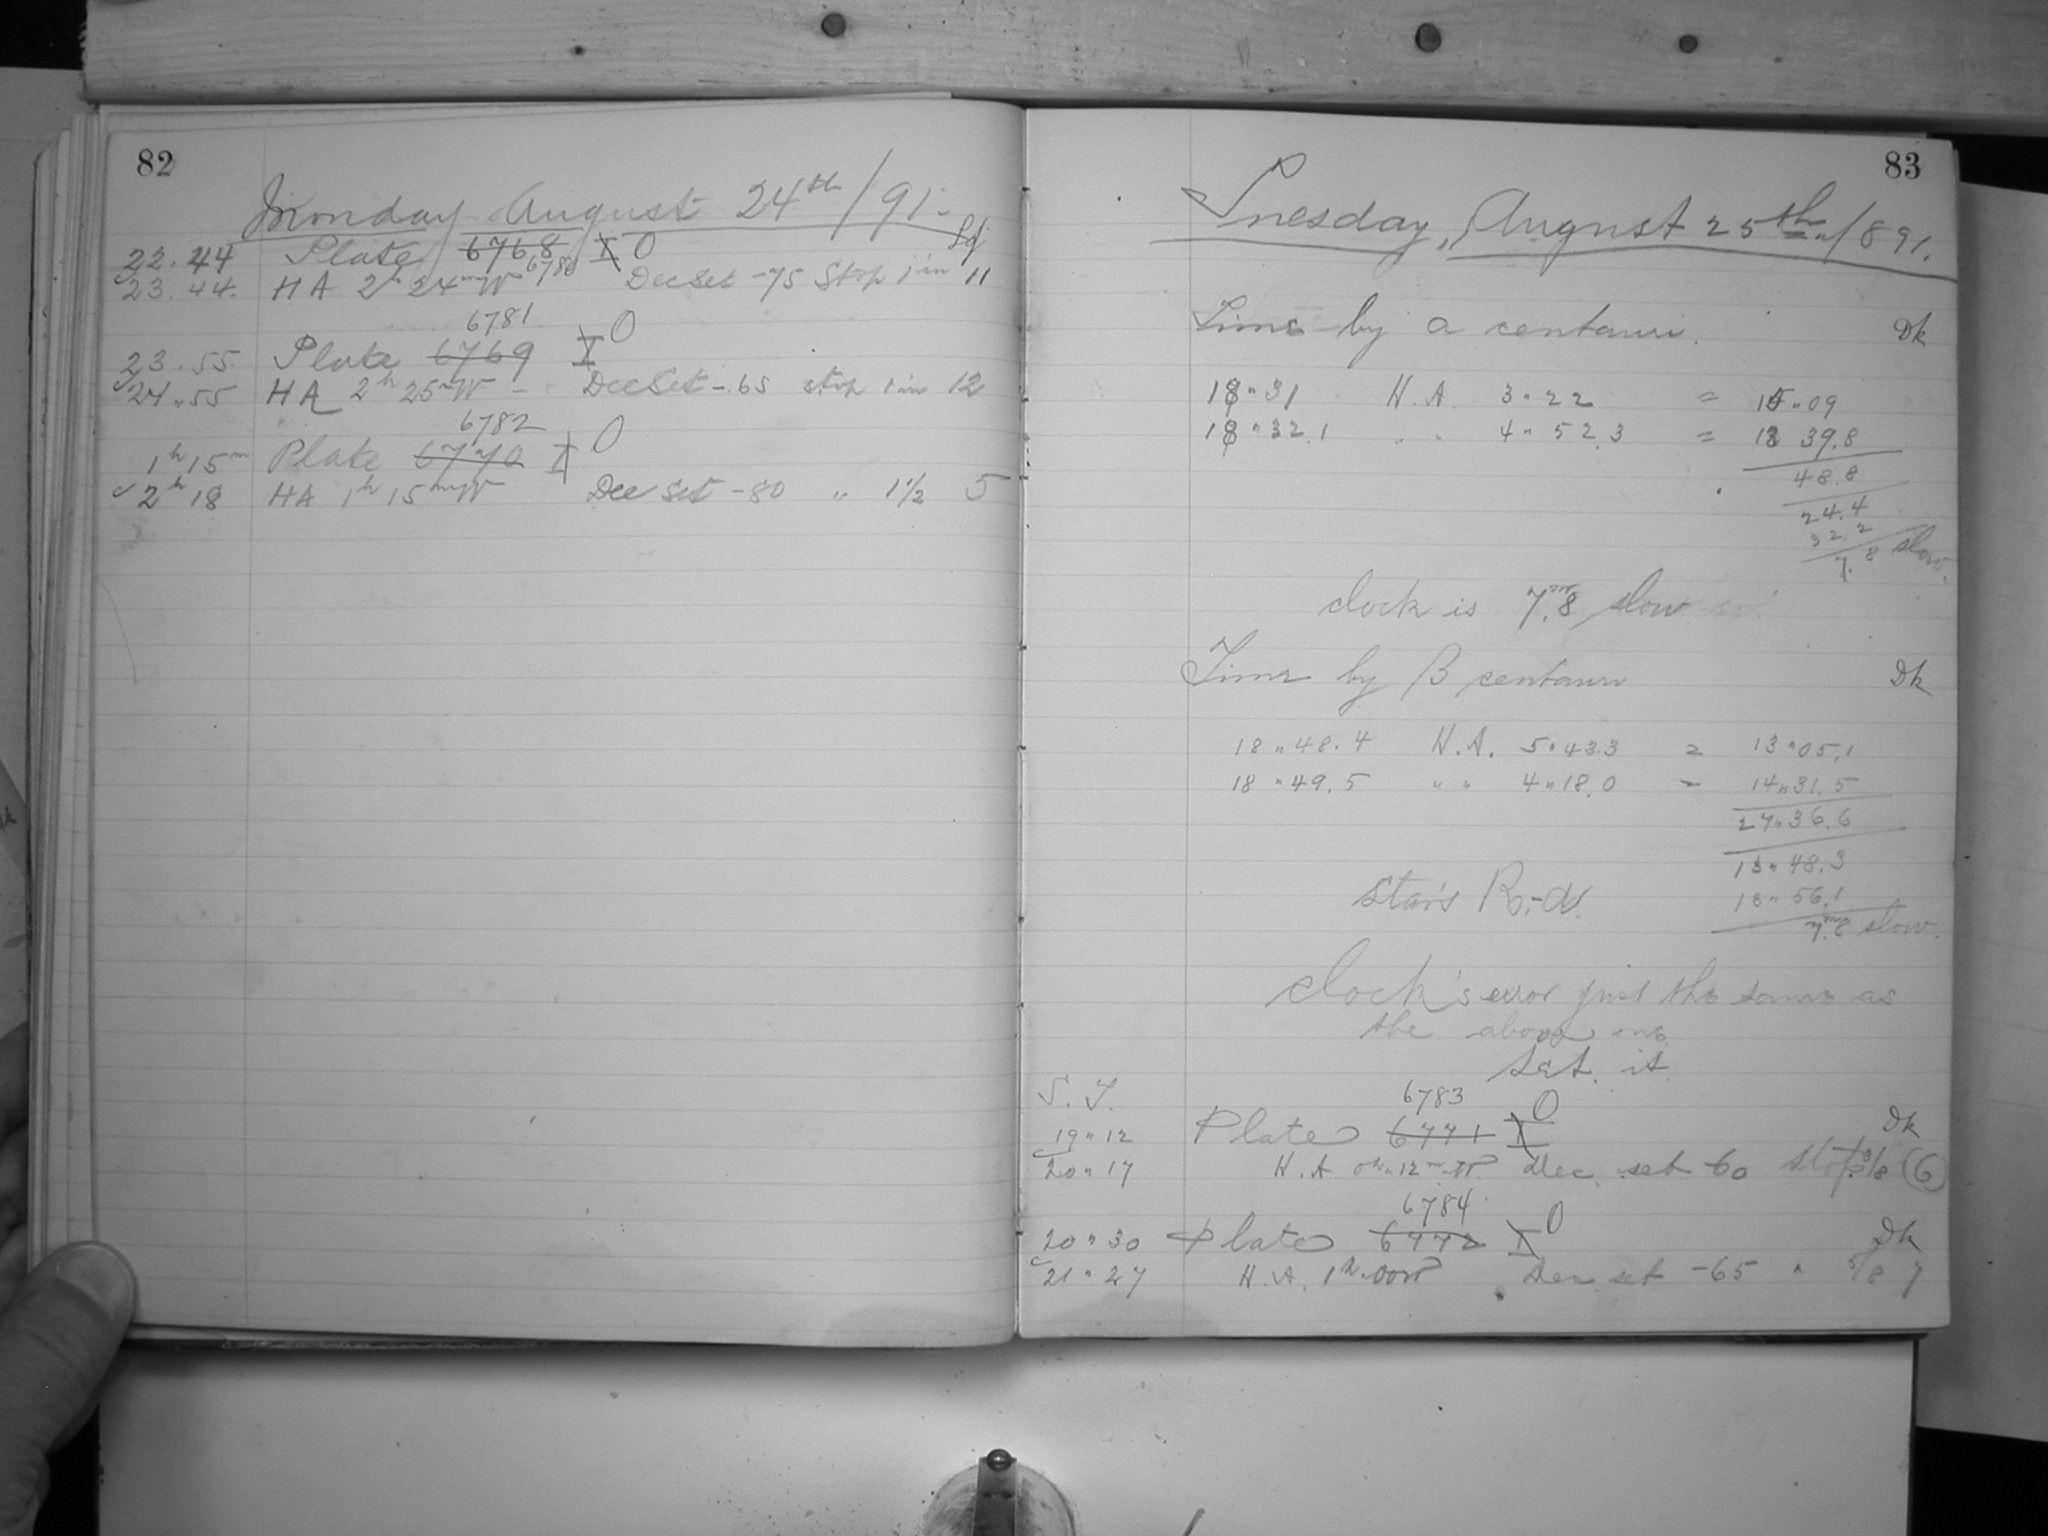 82
Monday August 24th/91.
22.44 Plate 6768 I O
6780
23.44. HA 2h 24m W Dec Set -75 Stop 1 in 11
6781
23.55. Plate 6769 I O
24.55 HA 2h 25m W - Dec Set -65 stop 1 in 12
6782
1h 15m Plate 6770 I O
2h 18 HA 1h 15m W Dec Set -80 " 1 1/2 5
83
Tuesday, August 25th, 1891.
Time by a centauri. Dk
18 " 31 H.A. 3 " 22 = 15 " 09
18 " 32.1 " " 4 " 52.3 = 13 39.8
48.8
24.4
32.2
7.8 slow.
clock is 7m.8 slow
Time by B centauri Dk
18 " 48.4 H.A. 5 " 43.3 = 13 " 05.1
18 " 49.5 " " 4 " 18.0 = 14 " 31.5
27 " 36.6
13 " 48.3
Star's R.-A. 13 " 56.1
7m.8 slow.
Clock's error just the same as
the above one
Set it
S. T.
6783
19 " 12 Plate 6771 I O Dk
20 " 17 H.A. 0h " 12m W Dec. set -60 stop 3/8 (6)
6784
20 " 30 Plate 6772 I O Dk
21 " 27 H.A. 1h 00 W Dec set -65 " 5/8 7